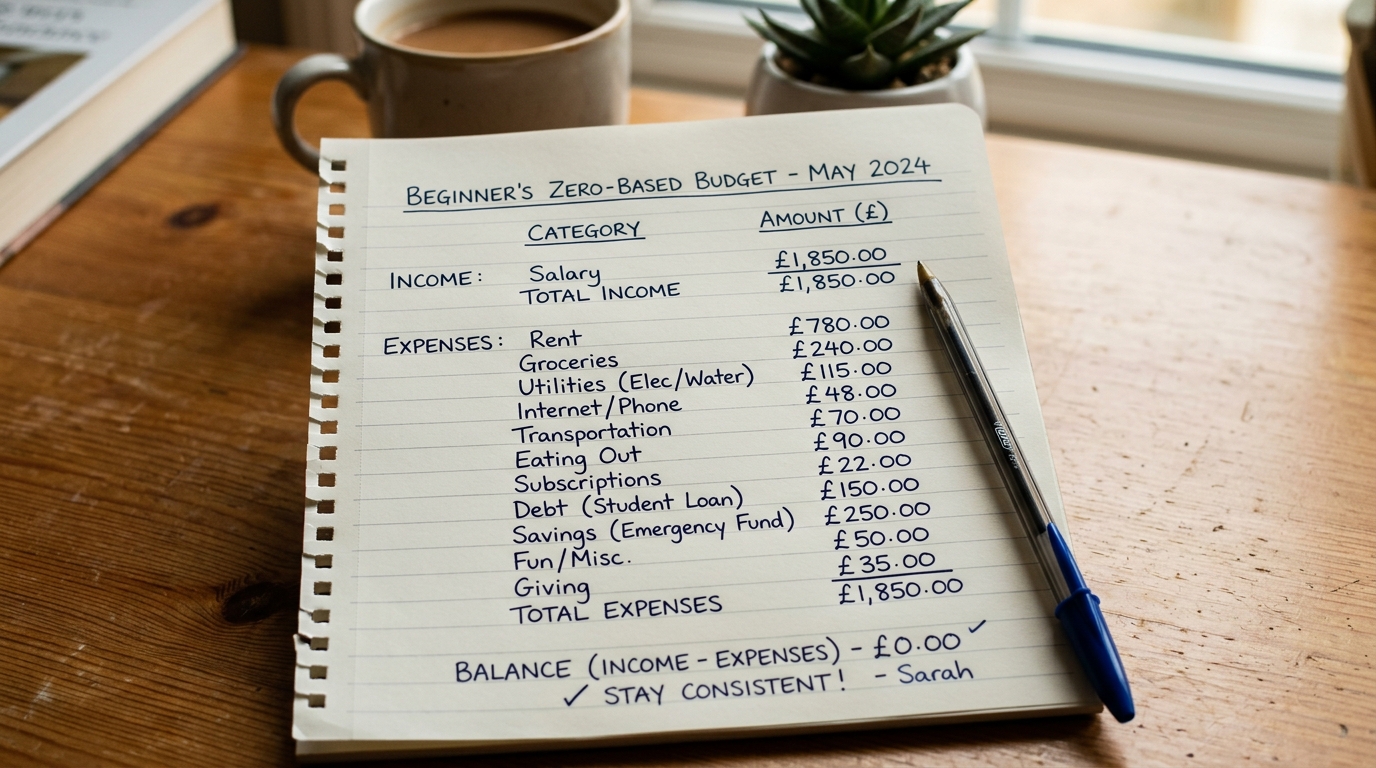 BEGINNER'S ZERO-BASED BUDGET - MAY 2024
CATEGORY AMOUNT (£)
INCOME: Salary £1,850.00
TOTAL INCOME £1,850.00
EXPENSES: Rent £780.00
Groceries £240.00
Utilities (Elec/Water) £115.00
Internet/Phone £48.00
Transportation £70.00
Eating Out £90.00
Subscriptions £22.00
Debt (Student Loan) £150.00
Savings (Emergency Fund) £250.00
Fun/Misc. £50.00
Giving £35.00
TOTAL EXPENSES £1,850.00
BALANCE (INCOME - EXPENSES) - £0.00 ✓
✓ STAY CONSISTENT! - Sarah